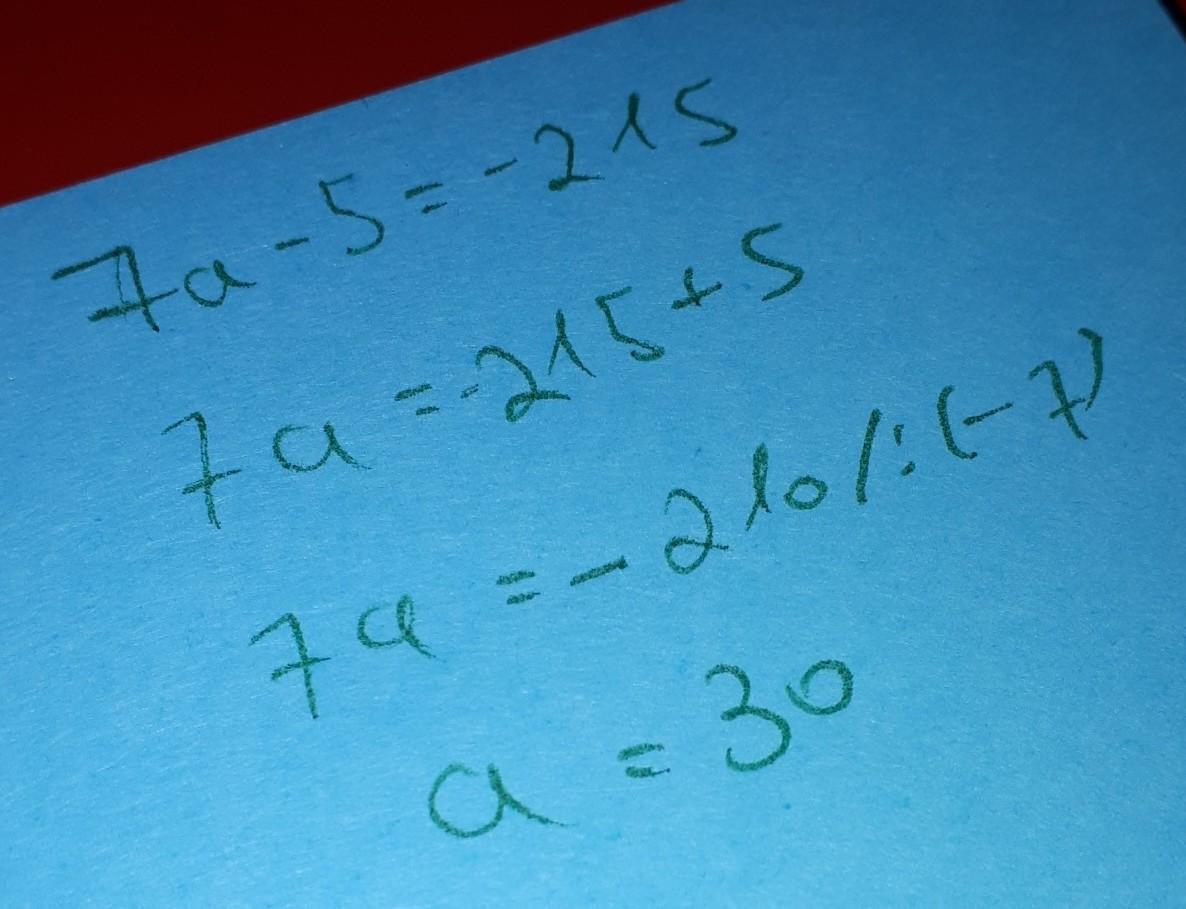 7a - 5 = - 215
7a = - 215 + 5
7a = - 210 / : (- 7)
a = 30